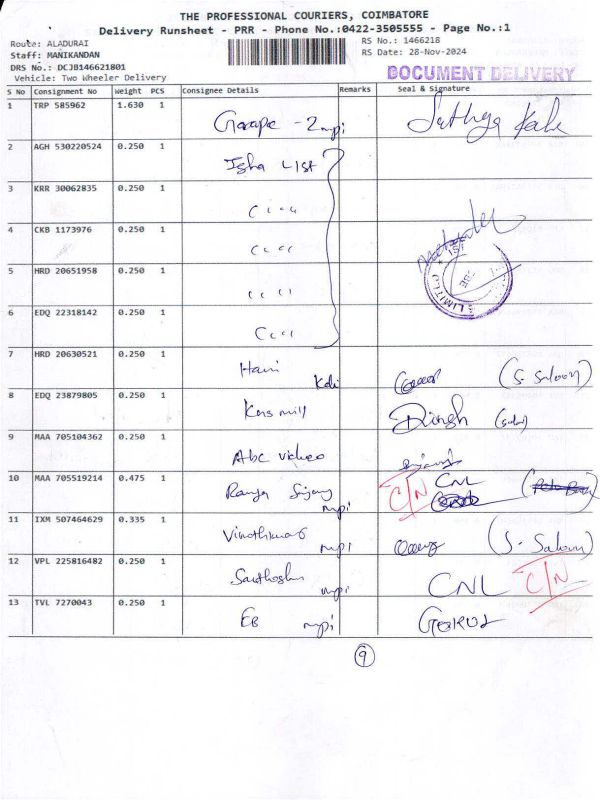 THE PROFESSIONAL COURIERS, COIMBATORE
Delivery Runsheet - PRR - Phone No.:0422-3505555 - Page No.:1
Route: ALADURAI
RS No.: 1466218
Staff: MANIKANDAN
RS Date: 28-Nov-2024
DRS No.: DCJB146621801
DOCUMENT DELIVERY
Vehicle: Two Wheeler Delivery
S No Consignment No Weight PCS Consignee Details Remarks Seal & Signature
1 TRP 585962 1.630 1
2 AGH 530220524 0.250 1 Isha List
3 KRR 30062835 0.250 1
4 CKB 1173976 0.250 1
5 HRD 20651958 0.250 1
LIMITED
6 EDQ 22318142 0.250 1
7 HRD 20630521 0.250 1 Hari (S. Saloon)
8 EDQ 23879805 0.250 1 Kms mill
9 MAA 705104362 0.250 1 Abc video
10 MAA 705519214 0.475 1 Ramya mpi C/N CNL
11 IXM 507464629 0.335 1 mpi (S. Saloon)
12 VPL 225816482 0.250 1 mpi CNL C/N
13 TVL 7270043 0.250 1 EB mpi Gokul
9